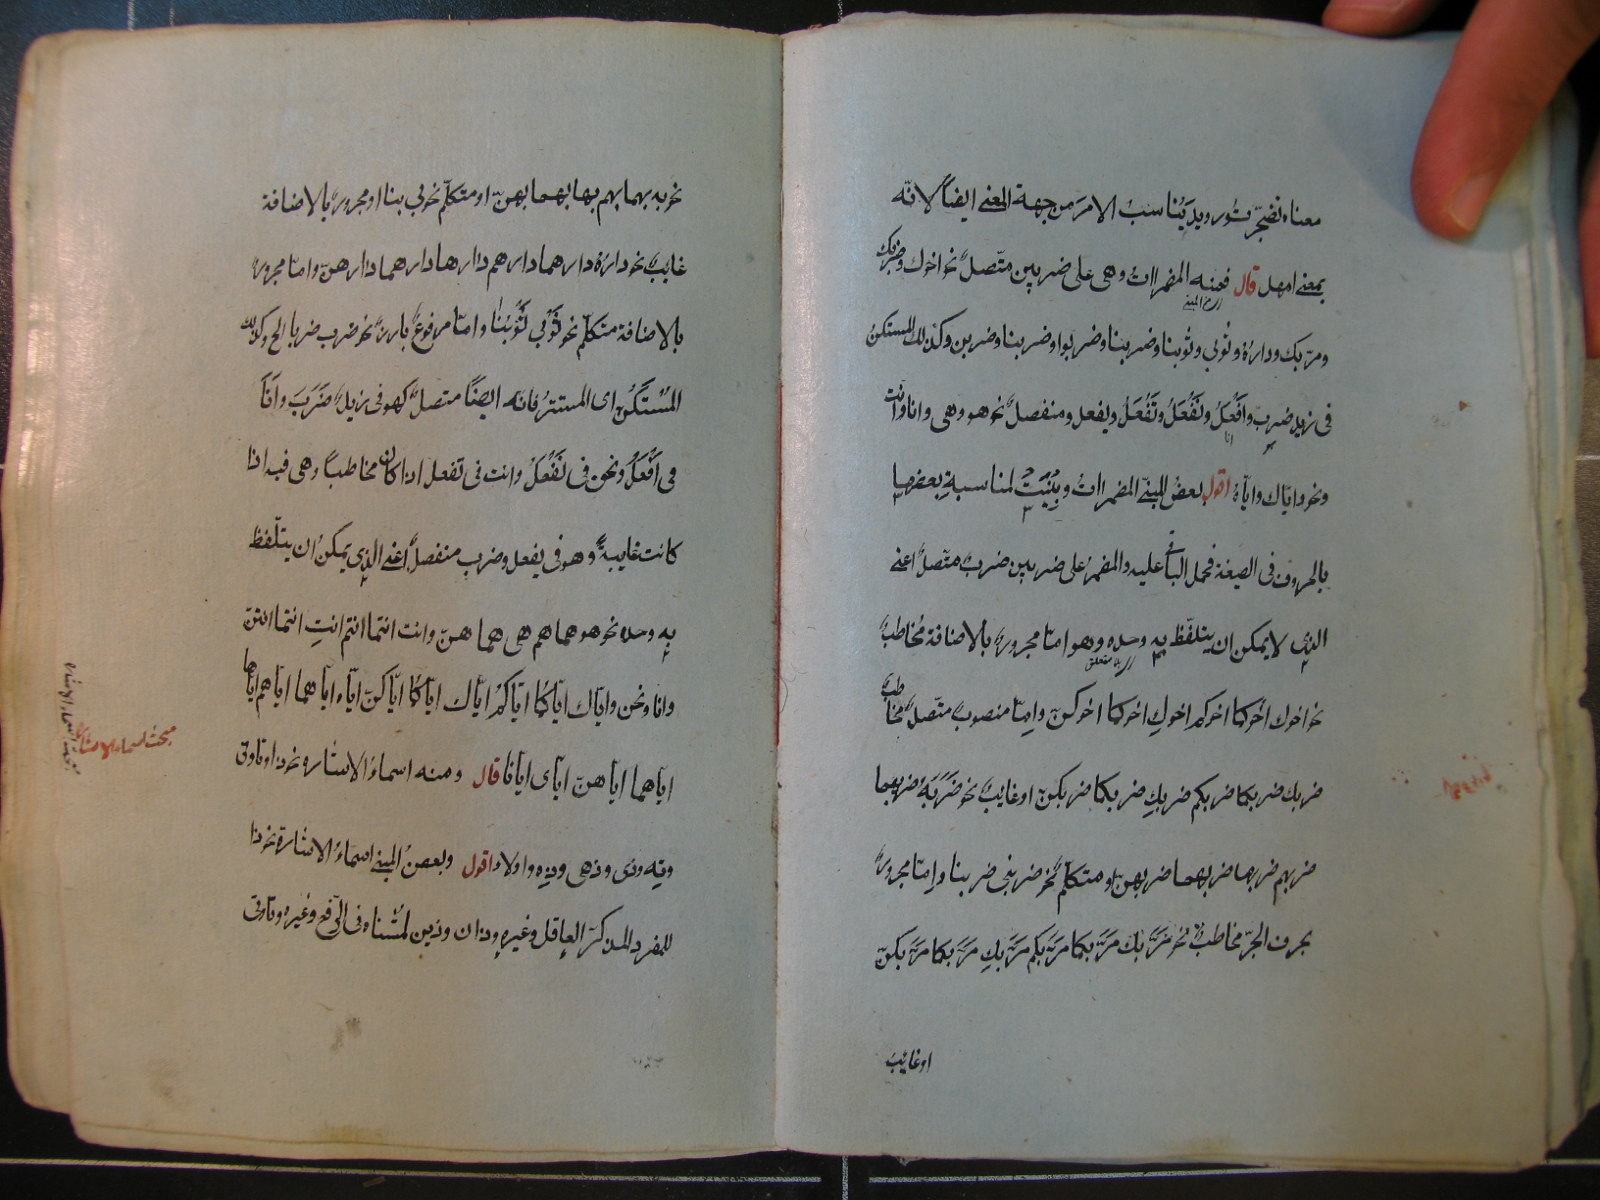 معناه تضجّرت ورويد يُناسبُ الامرَ من جهة المعنى ايضاً لانّه
بمعنى امهل قال فمنه المضمرات وهى على ضربين متّصلٌ نحو اخوك وضربك
ومرّ بك وداره وثوبى وثوبنا وضربنا وضربوا وضربنا وضربن وكذلك المستكن
فى زيد ضرب وافْعَلُ ونَفْعَلُ وتَفْعَلُ ويفعل ومنفصلٌ نحو هو وهى وانا وانت
ونحو ايّاك وايّاه اقول بعضُ المبنىّ المضمرات وبُنِيَتْ لمناسبةِ بعضها
بالحروف فى الصيغة فحمل الباقى عليه والمضمرُ على ضربين ضربٌ متّصلٌ اعنى
الذى لا يمكن ان يتلفّظ به وحده وهو امّا مجرورٌ بالاضافة مُخاطبٌ
نحو اخوك اخوكما اخوكم اخوكِ اخوكما اخوكنّ وامّا منصوبٌ متّصلٌ مخاطب
ضربك ضربكما ضربكم ضربكِ ضربكما ضربكنّ او غايبٌ نحو ضَرَبَهُ ضربهما
ضربهم ضربها ضربهما ضربهنّ او متكلّمٌ نحو ضربنى ضربنا وامّا مجرورٌ
بحرف الجرّ مخاطبٌ نحو مَرَّ بك مَرَّ بكما مَرَّ بكم مَرَّ بكِ مَرَّ بكما مَرَّ بكنّ
او غايبٌ
نحو به بهما بهم بها بهما بهنّ او متكلّم نحو بى بنا او مجرورٌ بالاضافة
غايبٌ نحو داره دارهما دارهم دارها دارهما دارهنّ وامّا مجرورٌ
بالاضافة متكلّم نحو ثَوْبى ثَوْبُنَا وامّا مرفوعٌ بارزٌ نحو ضرب ضربا الخ وكذلك
المُسْتَكنُ اى المستتر فانّه ايضًا متصلٌ كهو فى زيدٌ ضَرَبَ وانَا
فى اَفْعَلُ ونحن فى نَفْعَلُ وانت فى تفعل اذا كان مخاطبًا وهى فيه اذا
كانت غايبةً وهو فى يفعل وضرب منفصلٌ اعنى الذى يمكن ان يتلّفظ
به وحده نحو هو هما هم هى هما هنّ وانت انتما انتم انتِ انتما انتنّ
وانا ونحن وايّاك ايّاكما ايّاكم ايّاك ايّاكما ايّاكنّ ايّاه ايّاهما ايّاهم ايّاها
ايّاهما ايّاهنّ ايّاى ايّانا قال ومنه اسماءُ الاشاره نحو ذا وتا وتى
وته وذى وذهى وذه واولاء اقول وبعضُ المبنى اسماءُ الاشارة نحو ذا
للمفرد المذكر العاقل وغيره وذان وذين لمُثنّاه فى الرّفع وغيره وتا وتى
مبحث اسماء الاشارة